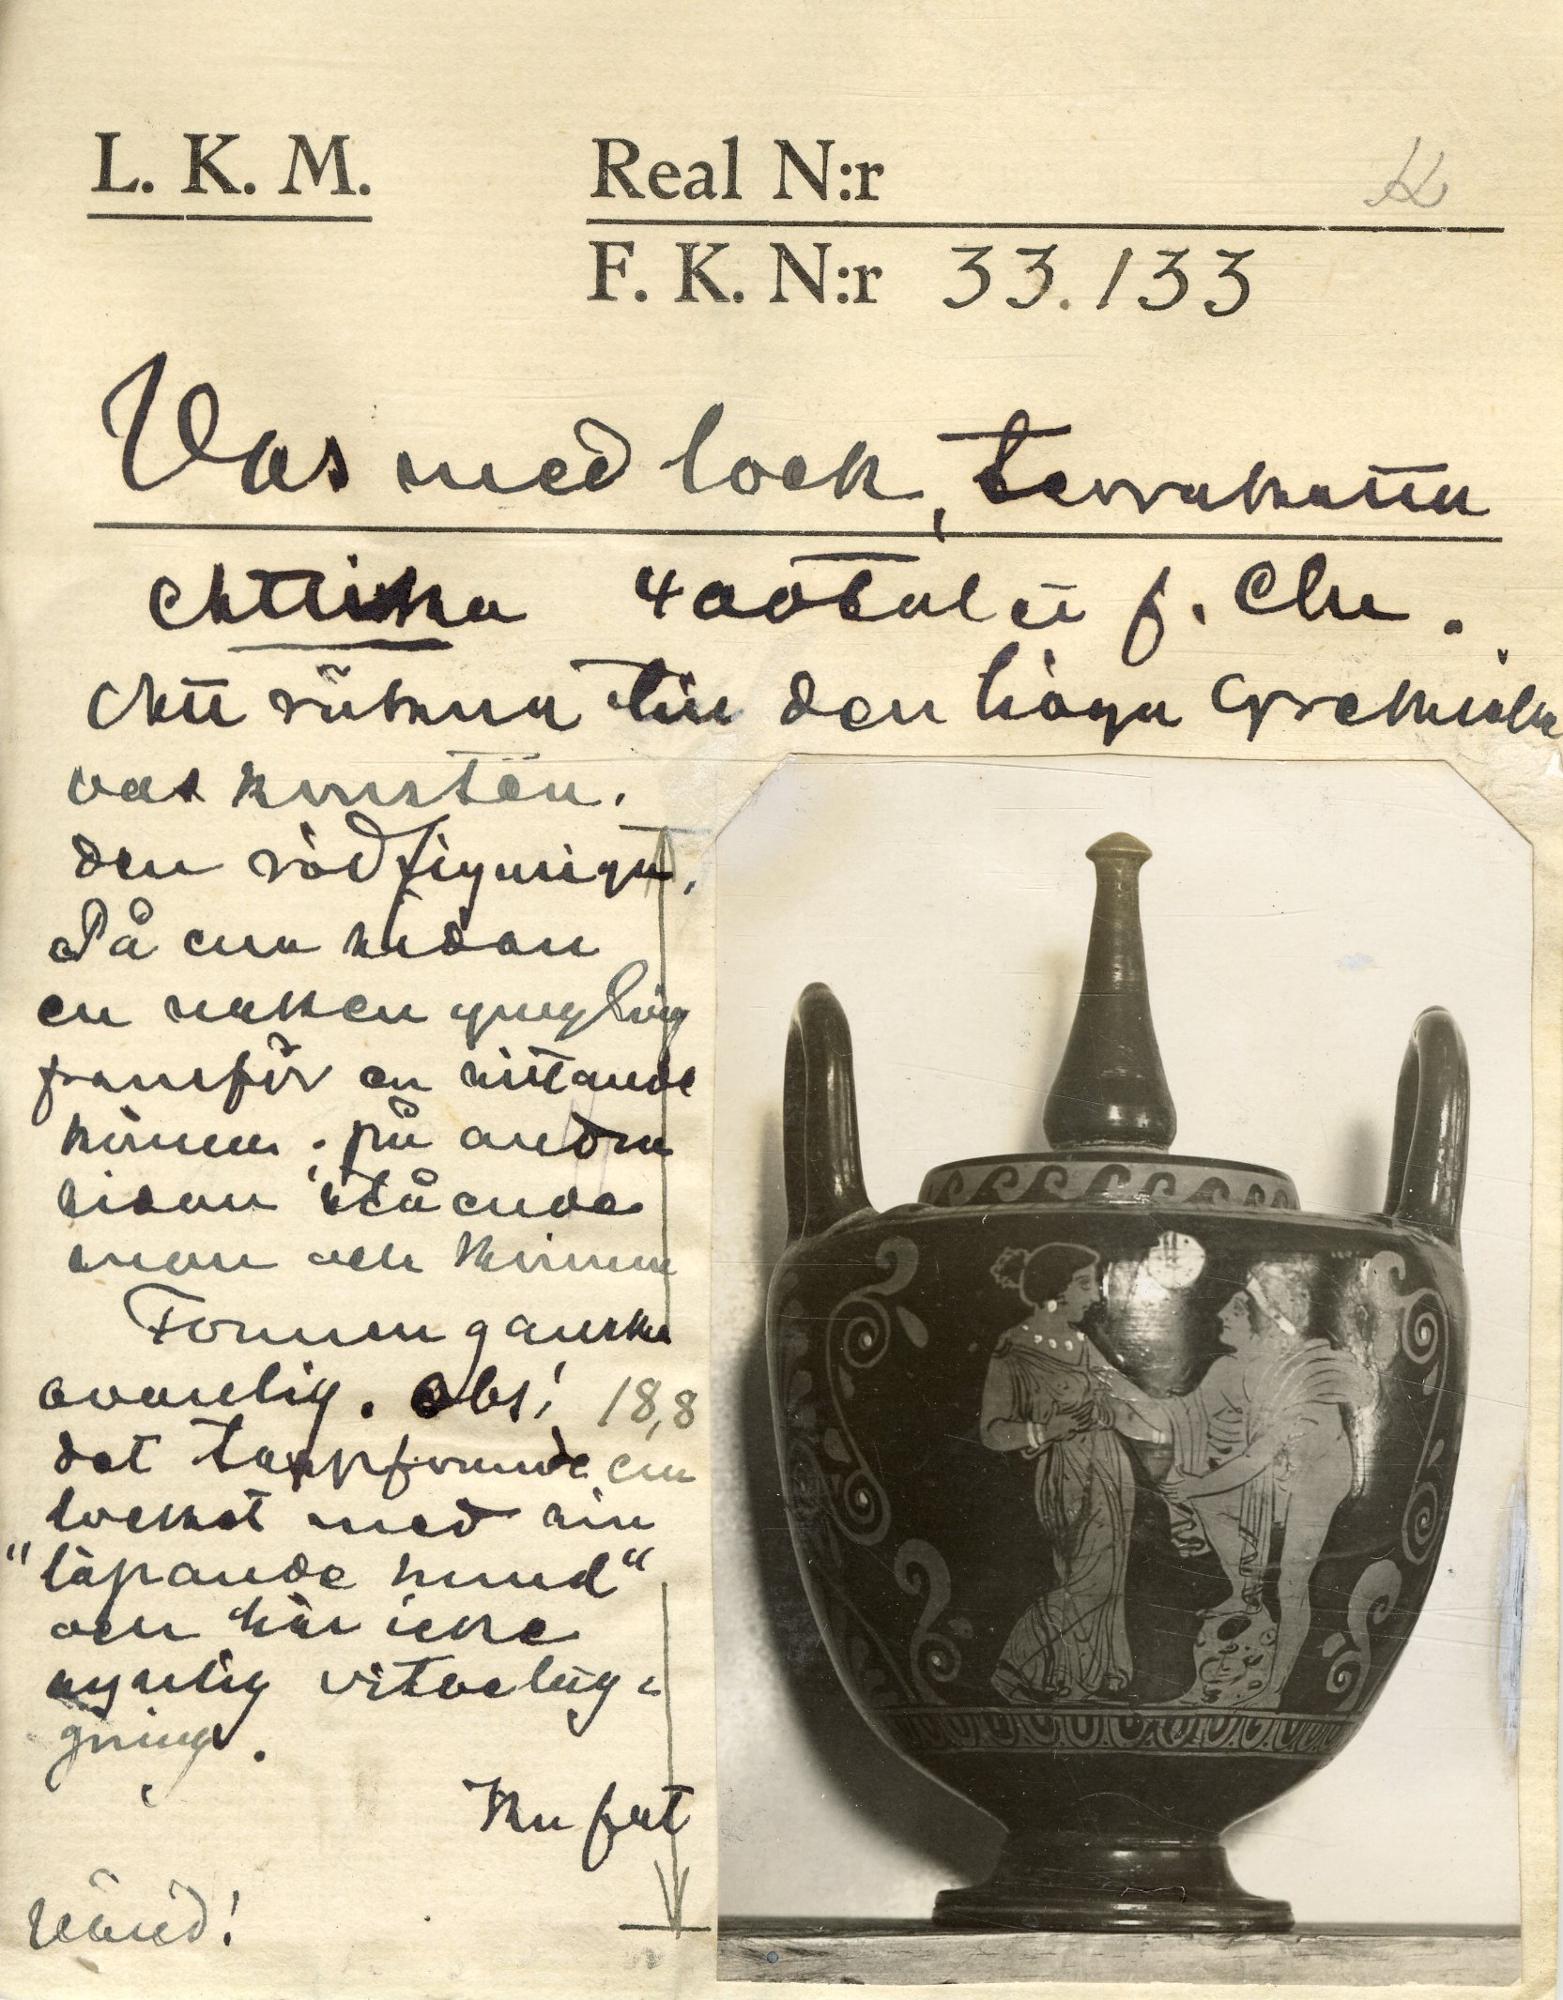 L. K. M.
Real N:r
F. K. N:r 33.133
Vas med lock, terrakotta
Attika 400talet f. Chr.
Att räkna till den höga Grekiska
vaskonsten.
den rödfiguriga.
På ena sidan
en naken yngling
framför en sittande
kvinna. på andra
sidan stående
man och kvinna
Formen ganska
ovanlig. Obs!
18,8
det tappformade
cm
locket med sin
"löpande hund"
och här icke
synlig vitbelägg-
gning.
fat
Vänd!